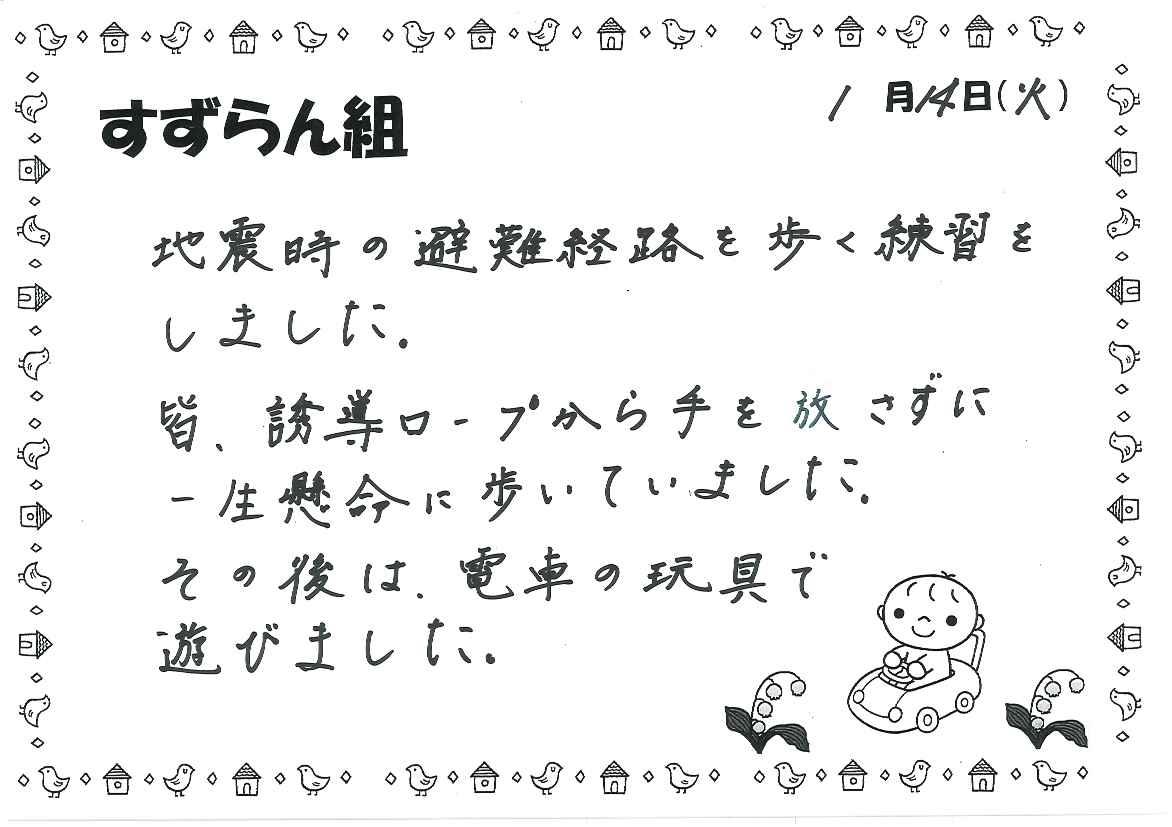 すずらん組
1月14日(火)
地震時の避難経路を歩く練習を
しました。
皆、誘導ロープから手を放さずに
一生懸命に歩いていました。
その後は、電車の玩具で
遊びました。